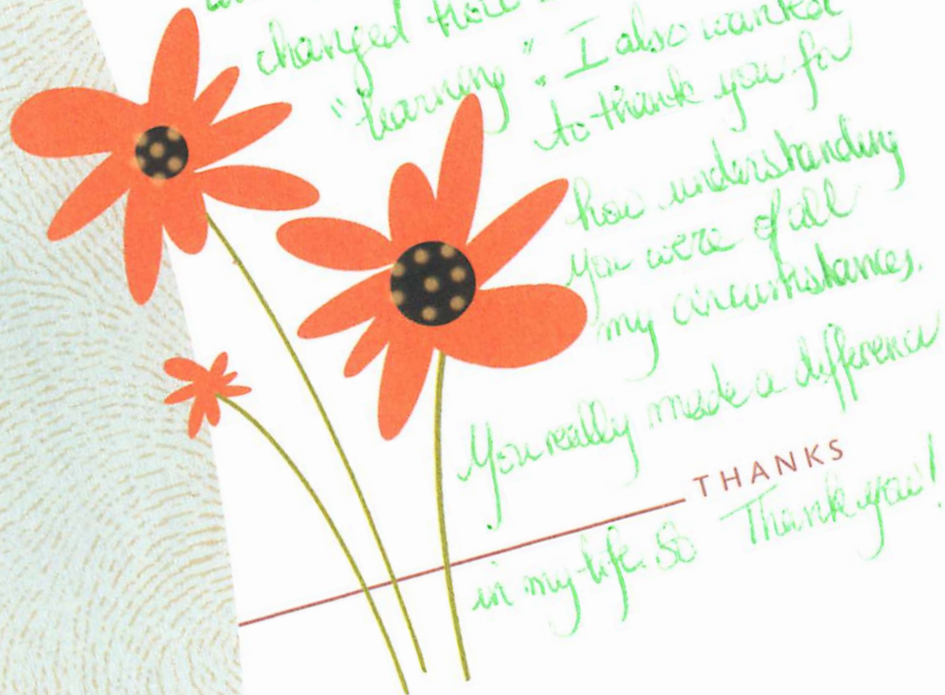 changed how
"learning". I also wanted
to thank you for
how understanding
you were of all
my circumstances.
You really made a difference
THANKS
in my life. So Thank you!